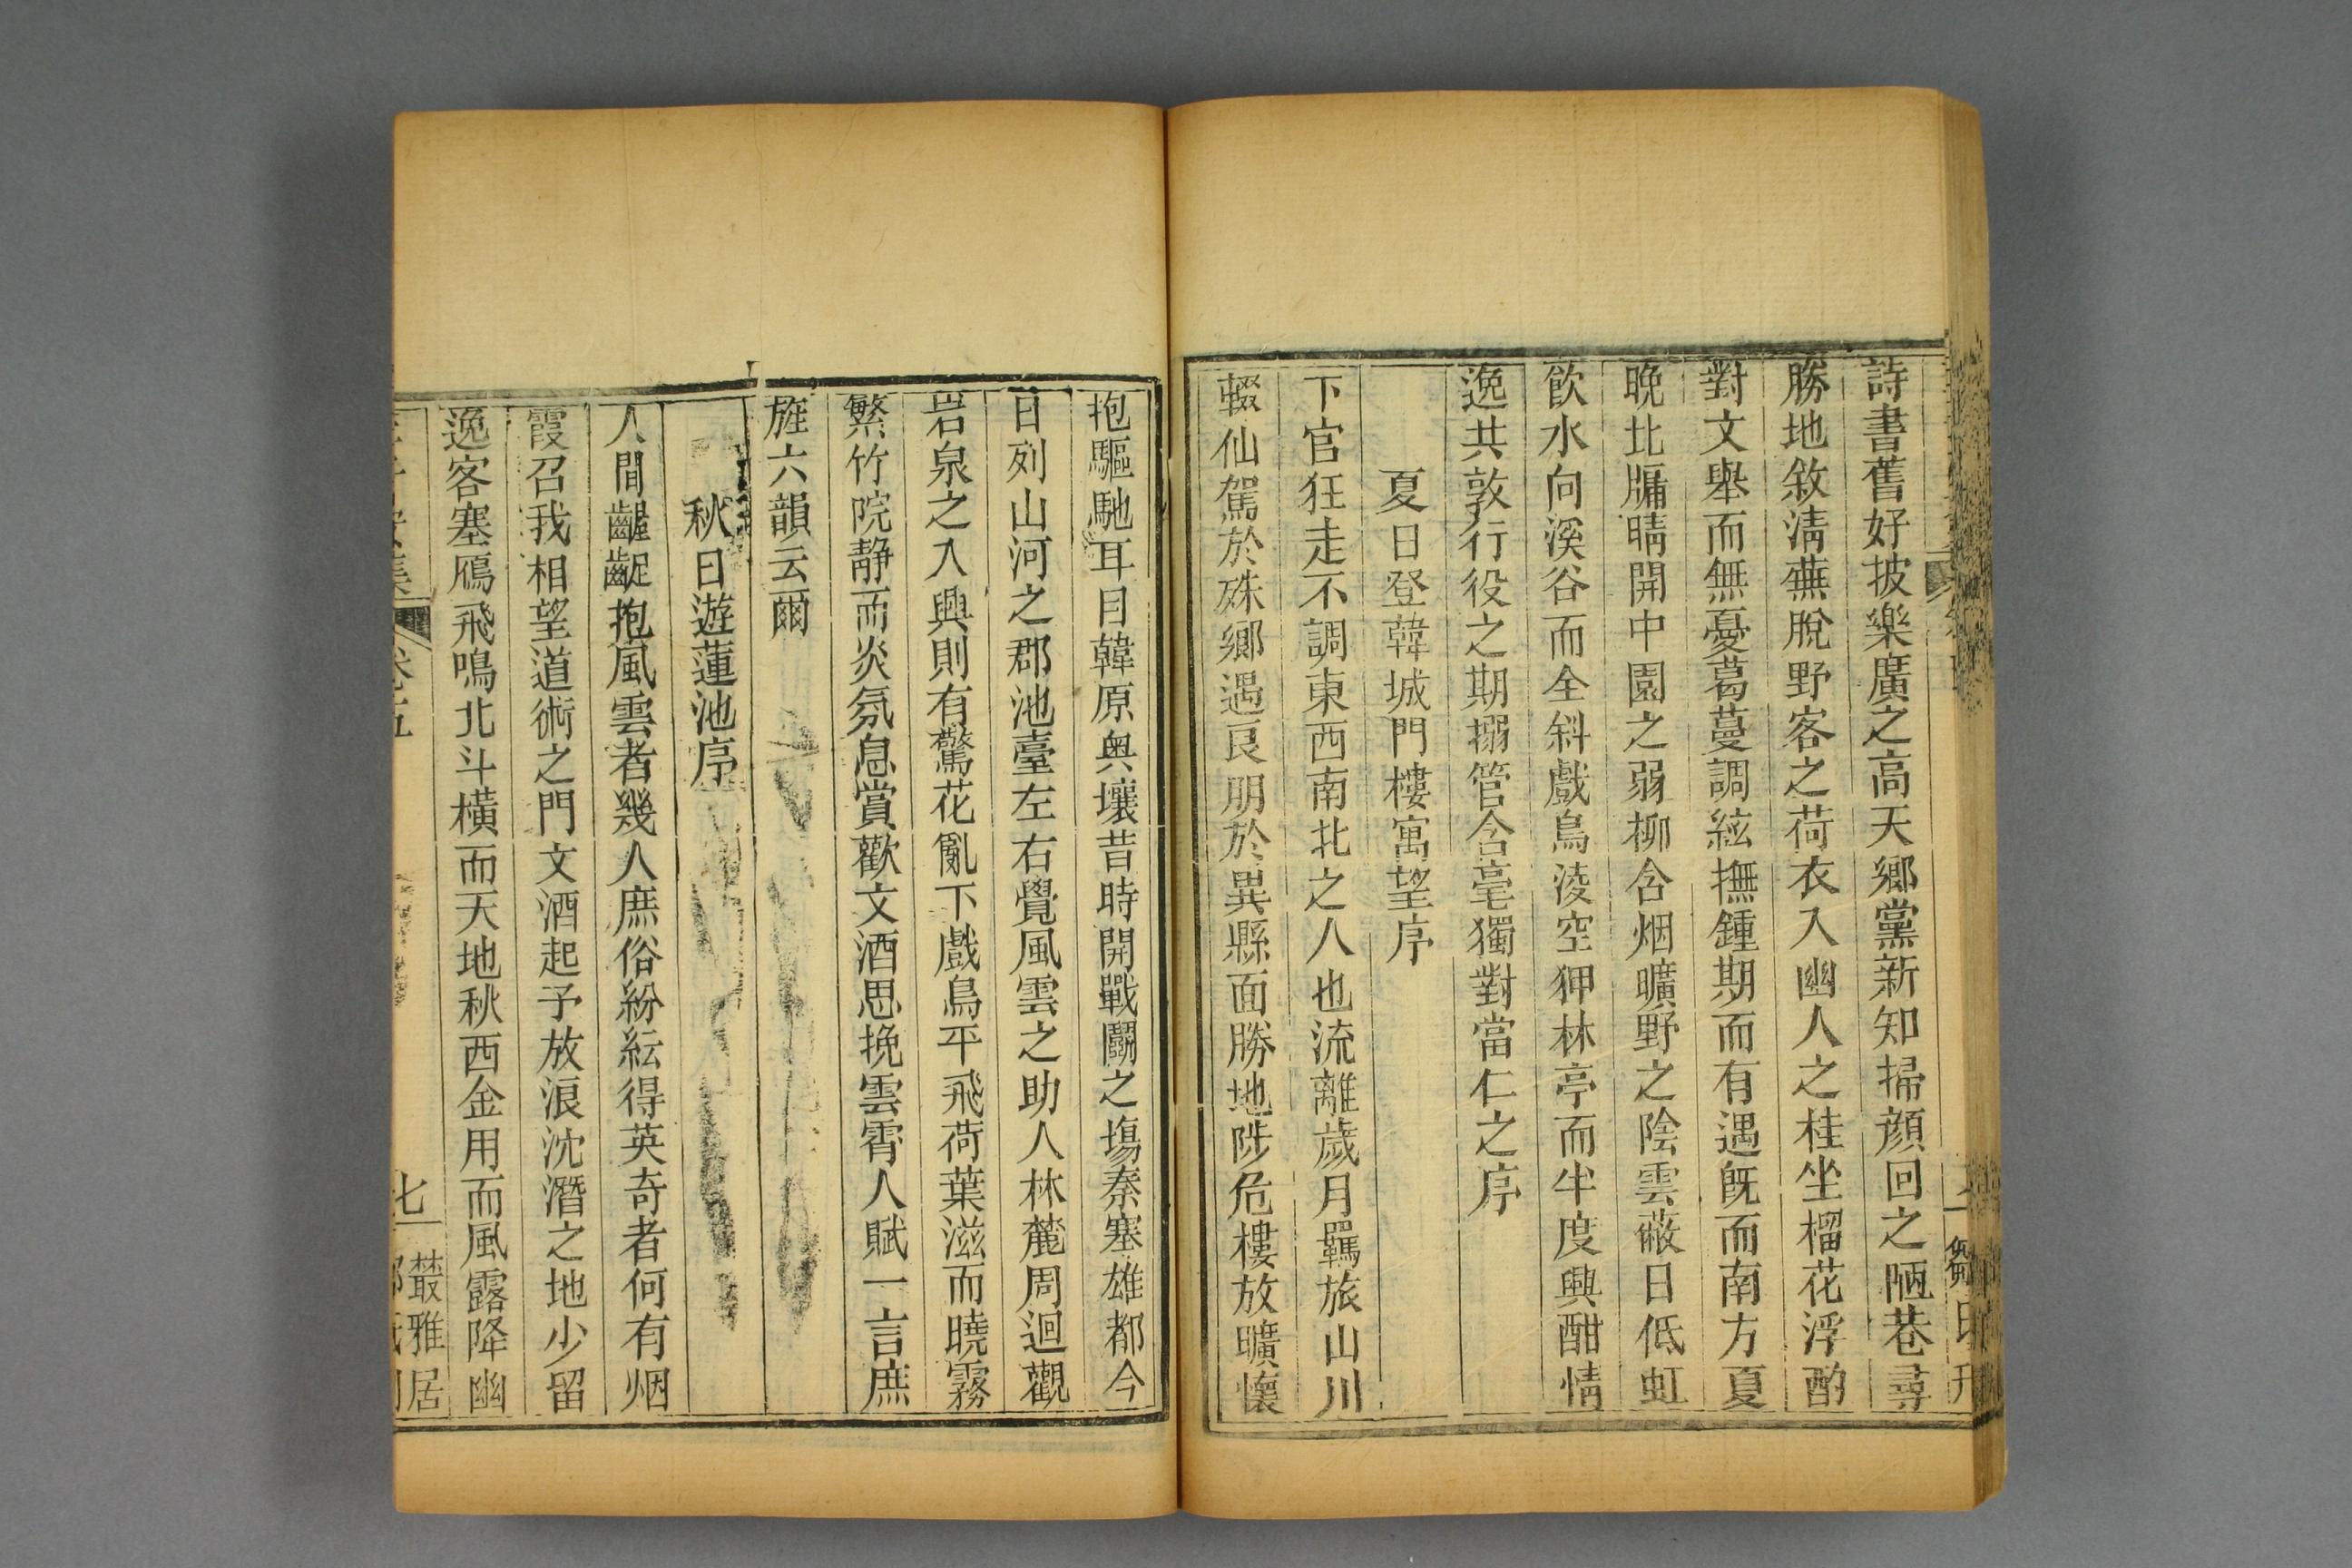 詩書舊好披樂廣之高天鄉黨新知掃顔回之陋巷尋
勝地敘淸蕪脫野客之荷衣入幽人之桂坐榴花浮酌
對文舉而無憂葛蔓調絃撫鍾期而有遇旣而南方夏
晚北牖晴開中園之弱柳含烟曠野之陰雲蔽日低虹
飲水向溪谷而全斜戲鳥淩空狎林亭而半度興酣情
逸共敦行役之期搦管含毫獨對當仁之序
夏日登韓城門樓寓望序
下官狂走不調東西南北之人也流離歲月羈旅山川
輟仙駕於殊鄉遇良朋於異縣面勝地陟危樓放曠懷
抱驅馳耳目韓原奥壤昔時開戰鬬之塲秦塞雄都今
日列山河之郡池臺左右覺風雲之助人林麓周迴觀
岩泉之入興則有驚花亂下戲鳥平飛荷葉滋而曉霧
繁竹院静而炎氛息賞歡文酒思挽雲霄人賦一言庶
旌六韻云爾
秋日遊蓮池序
人間齷齪抱風雲者幾人庶俗紛紜得英奇者何有烟
霞召我相望道術之門文酒起予放浪沈潛之地少留
逸客塞鴈飛鳴北斗橫而天地秋西金用而風露降幽
卷五
七
叢雅居